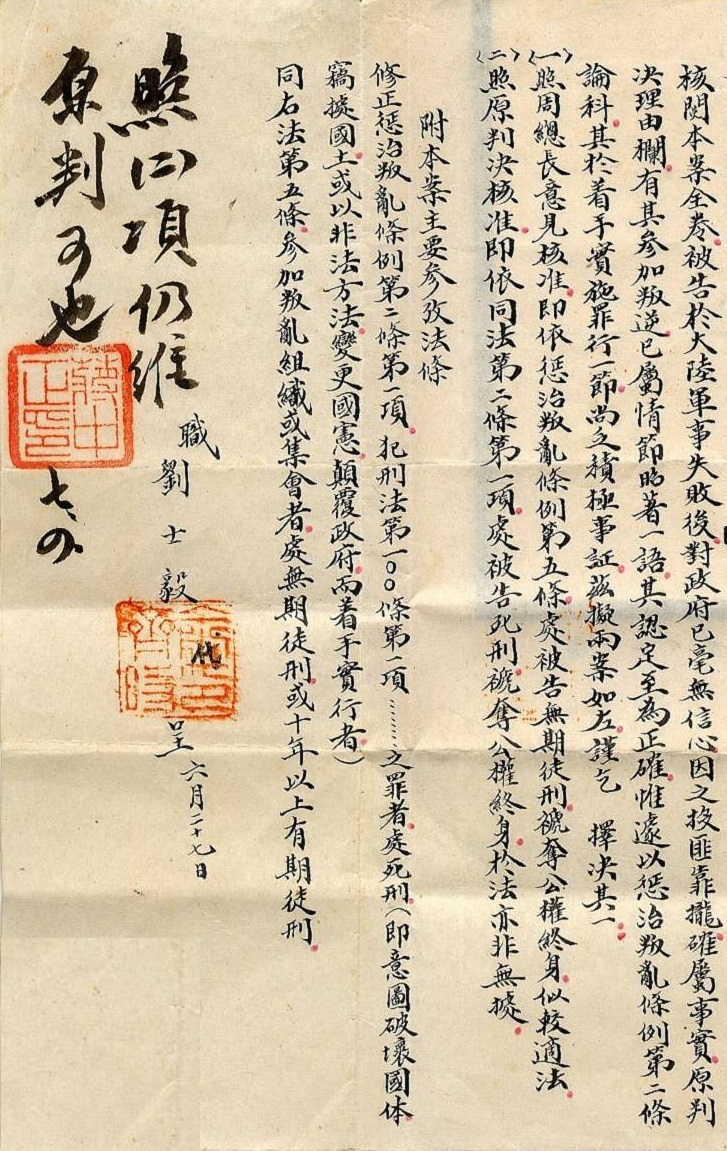 核閱本案全卷被告於大陸軍事失敗後對政府已毫無信心因之投匪靠攏確屬事實原判
決理由欄有其參加叛逆已屬情節昭著一語其認定至為正確惟遽以惩治叛亂條例第二條
論科其於着手實施罪行一節尚乏積極事証茲擬兩案如左謹乞 擇決其一
(一)照周總長意見核准即依惩治叛亂條例第五條處被告無期徒刑褫奪公權終身似較適法
(二)照原判決核准即依同法第二條第一項處被告死刑褫奪公權終身於法亦非無據
附本案主要參攷法條
修正惩治叛亂條例第二條第一項 犯刑法第一〇〇條第一項……之罪者處死刑(即意圖破壞國体
竊據國土或以非法方法變更國憲顛覆政府而着手實行者)
同右法第五條參加叛亂組織或集會者處無期徒刑或十年以上有期徒刑
職劉士毅 代 呈 六月二十七日
照㈡項仍維
原判可也
蔣中正印
七、